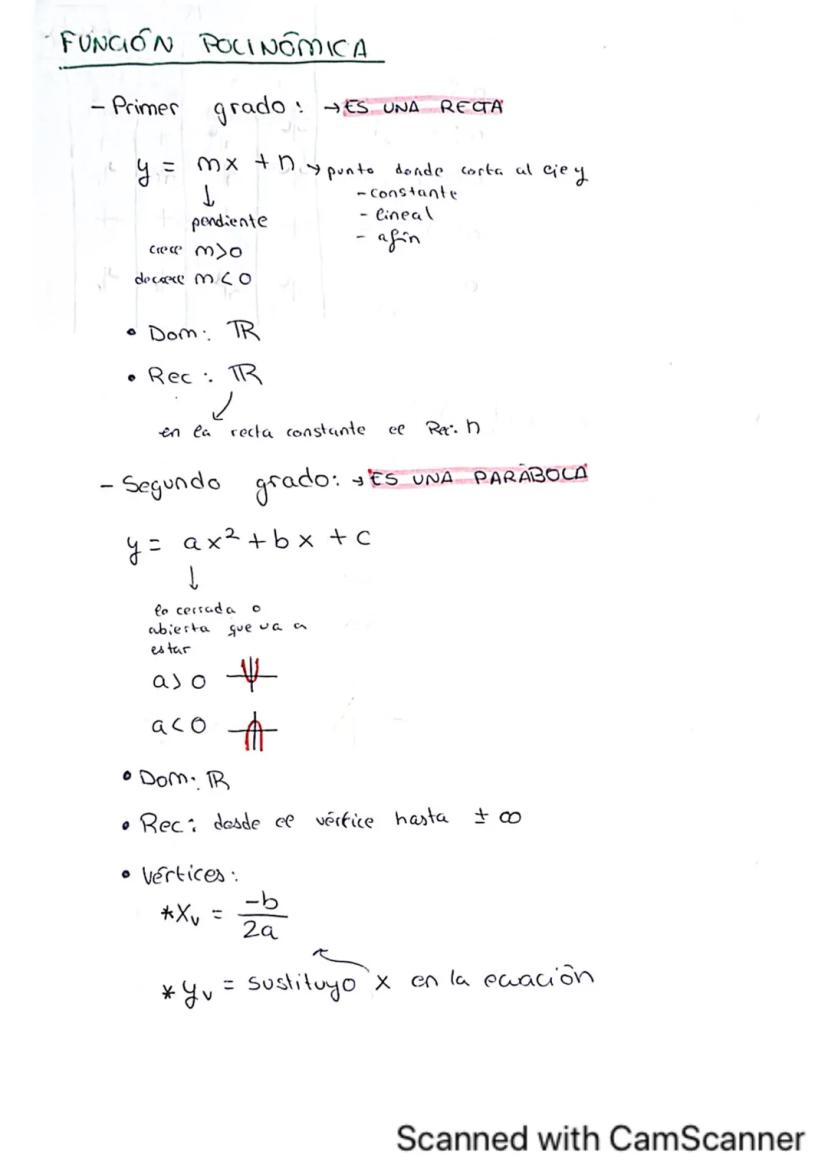 FUNCIÓN POLINÓMICA
- Primer grado: → ES UNA RECTA
y = mx + n → punto donde corta al eje y
↓
- constante
pendiente
- lineal
crece m>0
- afín
decrece m<0
• Dom: ℝ
• Rec: ℝ
en la recta constante el Rec: n
- Segundo grado: → ES UNA PARÁBOLA
y = ax² + bx + c
↓
lo cerrada o
abierta que va a
estar
a>0
a<0
• Dom: ℝ
• Rec: desde el vértice hasta ± ∞
• Vértices:
*Xv = -b
2a
*yv = sustituyo x en la ecuación
Scanned with CamScanner